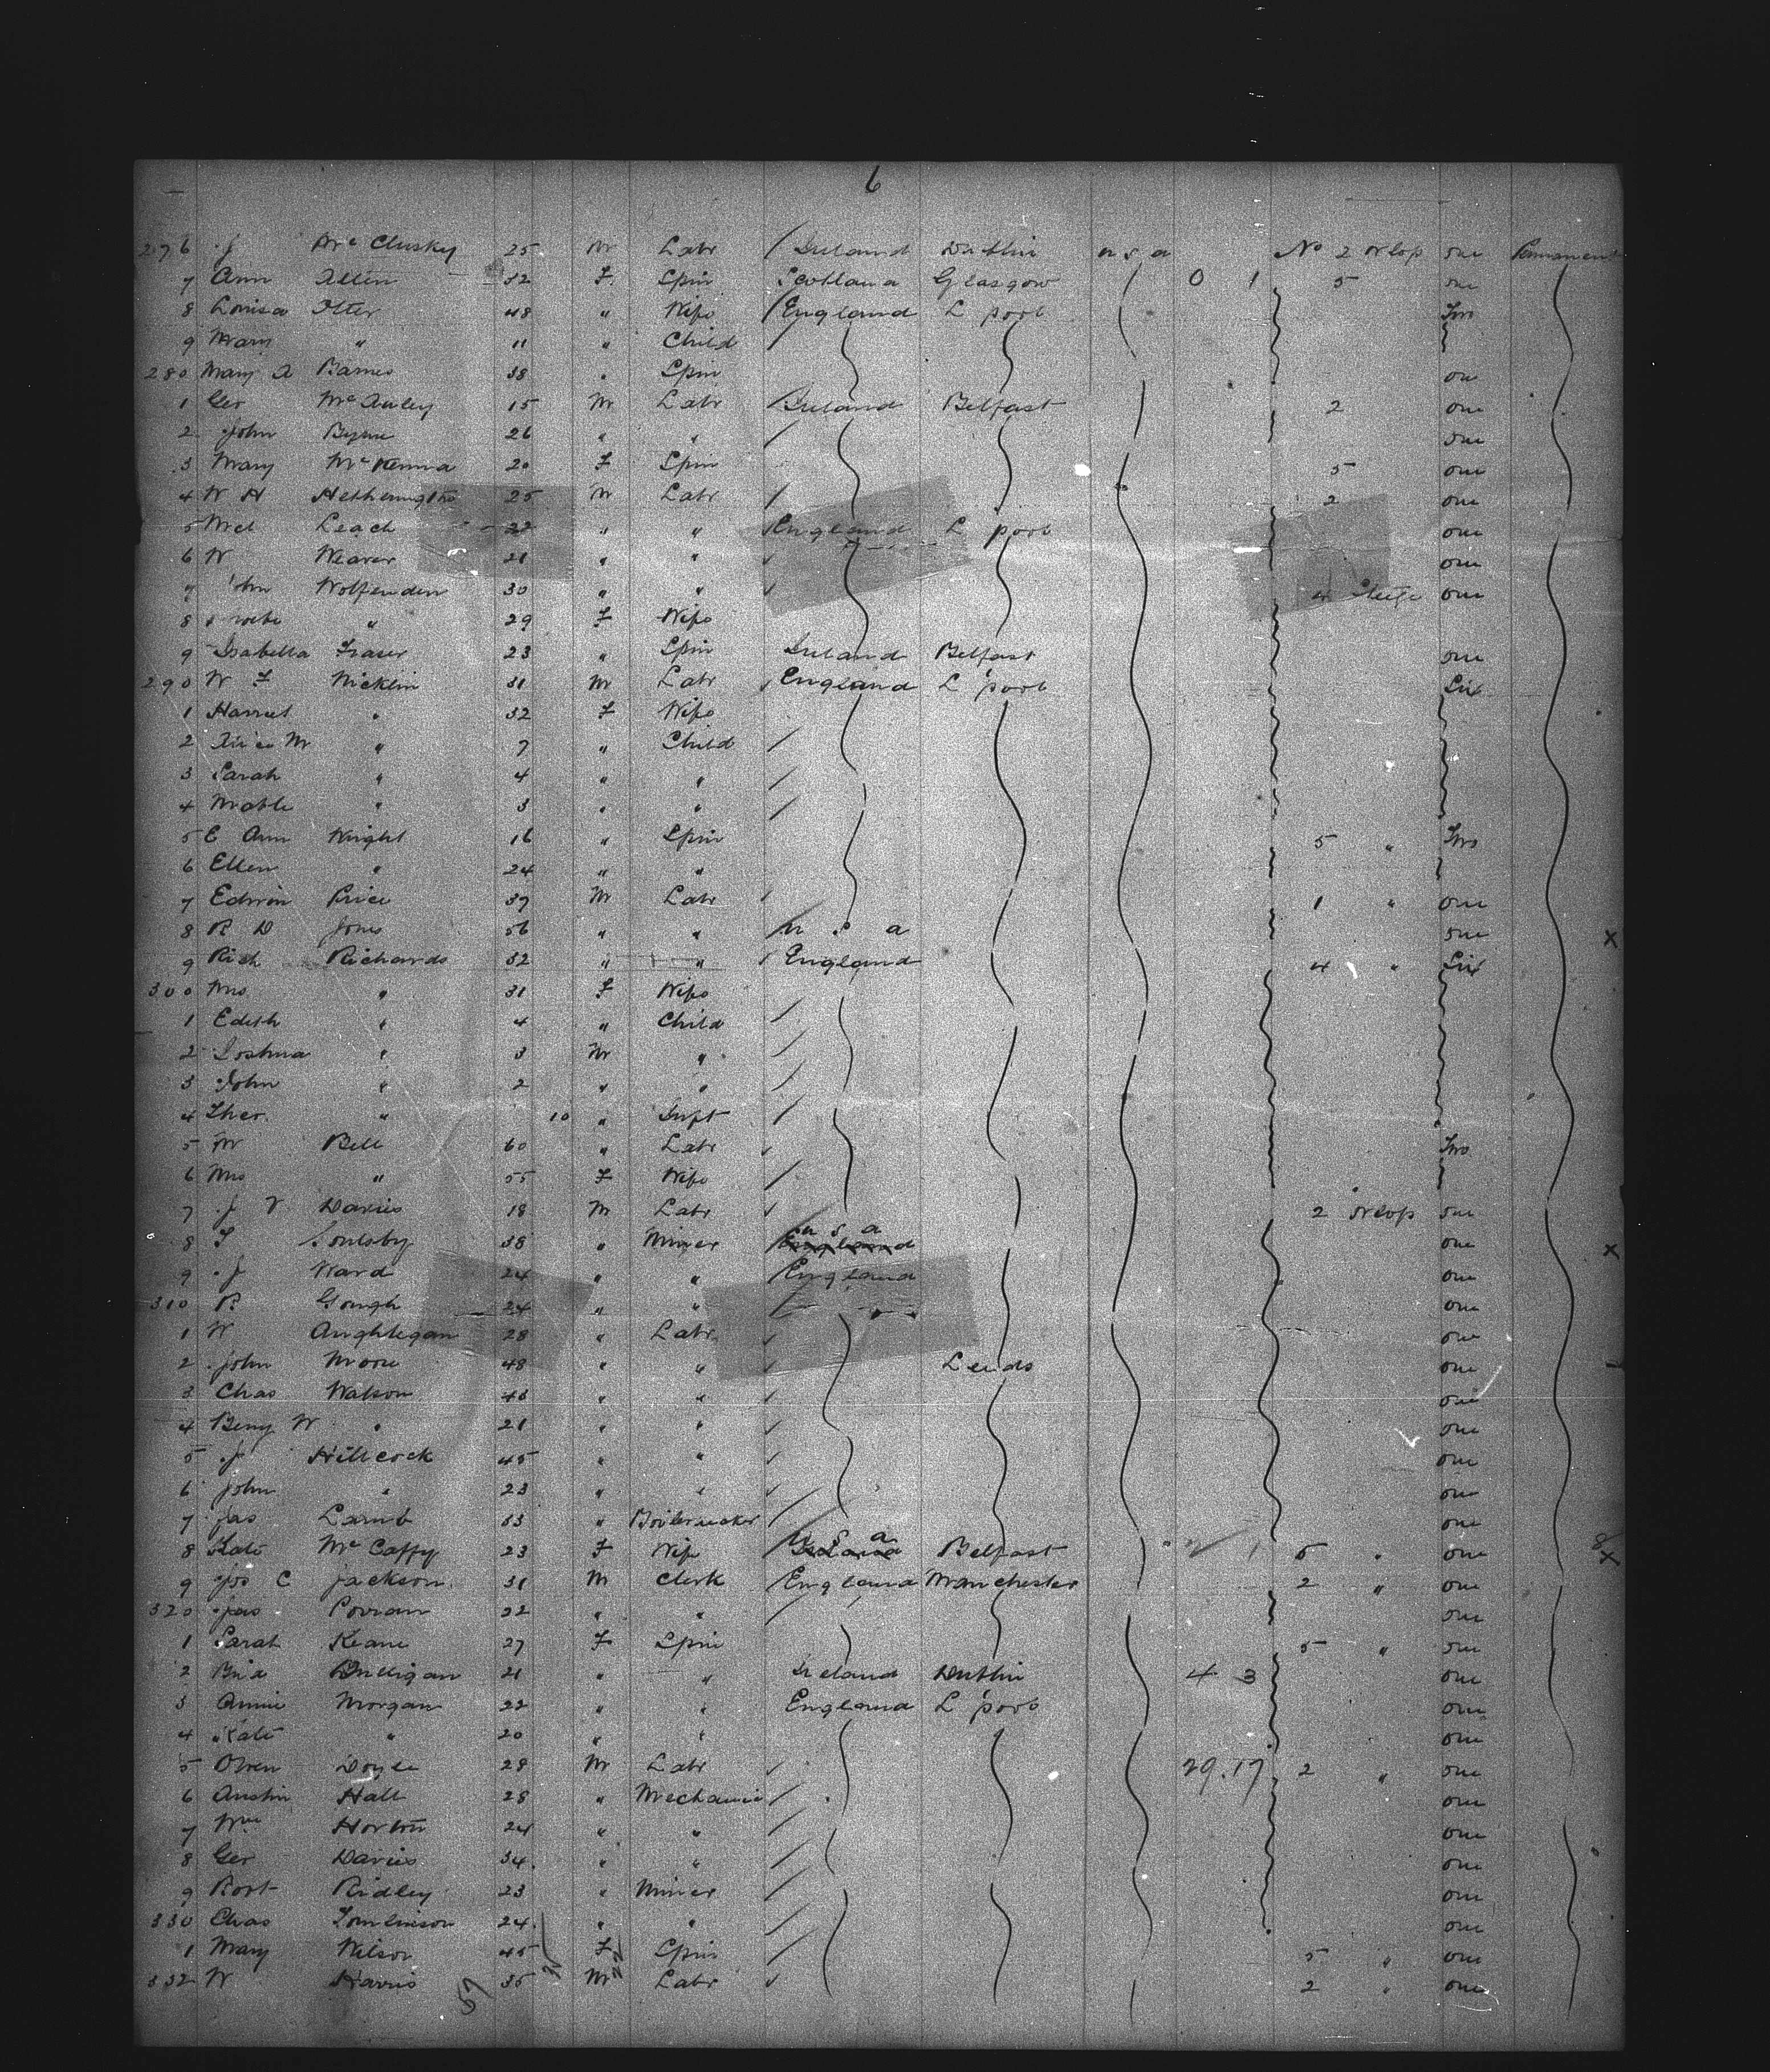 6
276 J McClusky 25 M Labr / Ireland Dublin u s a No 2 orlop one Permanent
7 Ann Allen 32 F. Spin Scotland Glasgow 0 1 5 one
8 Louisa Otter 48 " Wife / England L'pool Two
9 Mary " 11 " Child /
280 Mary A Barnes 38 " Spin one
1 Geo McAuley 15 M Labr / Ireland Belfast 2 one
2 John Byrne 26 " " / one
3 Mary McKenna 20 F Spin 5 one
4 W H Hetherington 25 M Labr / 2 one
5 Leach 22 " " England L'pool one
6 W Weaver 21 " " one
7 Wolfenden 30 " " 4 one
8 " 29 F Wife
9 Isabella Fraser 23 " Spin Ireland Belfast one
290 W F Nicklin 31 M Labr England L'pool Six
1 Harriet " 32 F Wife
2 M " 7 " Child /
3 Sarah " 4 " " /
4 Mable " 3 " " /
5 E Ann Wright 16 " Spin 5 " Two
6 Ellen " 24 " "
7 Edwin Price 37 M Labr 1 " one
8 R D Jones 56 " " / u s a one x
9 Rich Richards 32 " " England 4 " Six
300 Mrs " 31 F Wife
1 Edith " 4 " Child /
2 Joshua " 3 M " /
3 John " 2 " " /
4 " 10 " Inft /
5 W Bell 60 " Labr Two
6 Mrs " 55 F Wife /
7 J V Davies 18 M Labr 2 orlop one
8 T Soulsby 38 " Miner / u s a England one x
9 J Ward 24 " " / England one
310 R Gough 24 " " / one
1 W 28 " Labr one
2 John Moore 48 " " Leeds one
3 Chas Watson 43 " " one
4 Benj W " 21 " " one
5 J Hillcock 45 " " one
6 John " 23 " " one
7 Jas Lamb 33 " / one
8 Kate McCaffy 23 F Wife / u s a Ireland Belfast 1 5 " one x
9 Jos C Jackson 31 M Clerk / England Manchester 2 " one
320 Jas 22 " " / one
1 Sarah Keane 27 F Spin 5 " one
2 Brid 21 " " Ireland Dublin 4 3 one
3 Annie Morgan 22 " " England L'pool one
4 Kate " 20 " " one
5 Owen Doyle 28 M Labr 29.17 2 " one
6 Austin Hall 28 " Mechanic / one
7 Wm Horton 24 " " / one
8 Geo Davies 34 " " / one
9 Robt Ridley 23 " Miner / one
330 Chas Tomlinson 24 " " / one
1 Mary Wilson 45 F Spin / 5 " one
332 W Harris 35 M Labr 2 " one
57